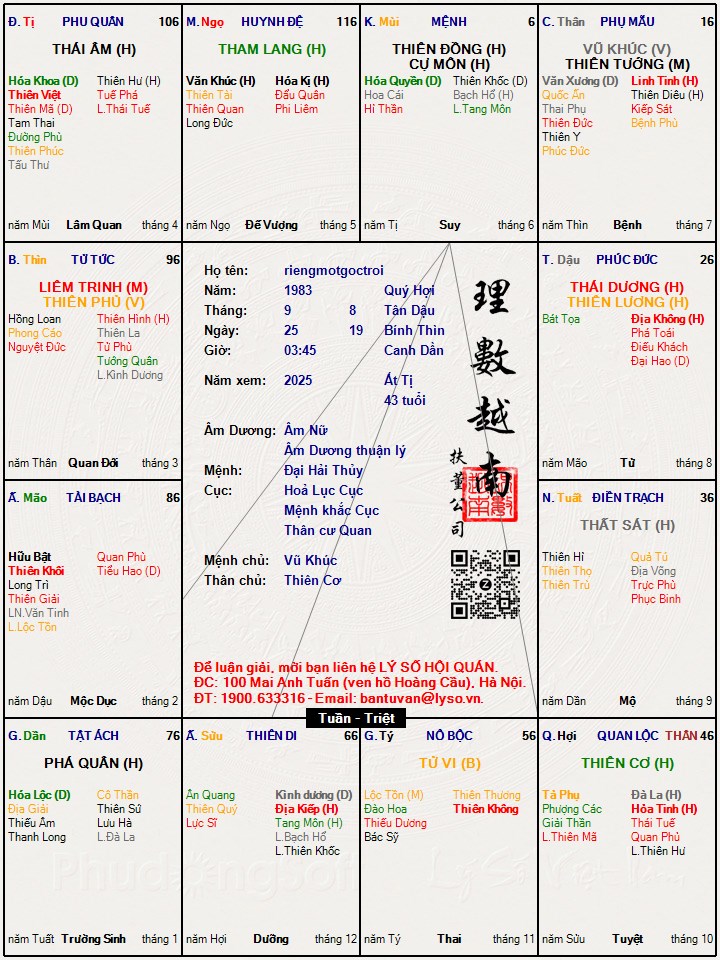 Đ. Tị PHU QUÂN 106
THÁI ÂM (H)
Hóa Khoa (D) Thiên Hư (H)
Thiên Việt Tuế Phá
Thiên Mã (D) L.Thái Tuế
Tam Thai
Đường Phù
Thiên Phúc
Tấu Thư
năm Mùi Lâm Quan tháng 4
M. Ngọ HUYNH ĐỆ 116
THAM LANG (H)
Văn Khúc (H) Hóa Kị (H)
Thiên Tài Đẩu Quân
Thiên Quan Phi Liêm
Long Đức
năm Ngọ Đế Vượng tháng 5
K. Mùi MỆNH 6
THIÊN ĐỒNG (H)
CỰ MÔN (H)
Hóa Quyền (D) Thiên Khốc (D)
Hoa Cái Bạch Hổ (H)
Hỉ Thần L.Tang Môn
năm Tị Suy tháng 6
C. Thân PHỤ MẪU 16
VŨ KHÚC (V)
THIÊN TƯỚNG (M)
Văn Xương (D) Linh Tinh (H)
Quốc Ấn Thiên Diêu (H)
Thai Phụ Kiếp Sát
Thiên Đức Bệnh Phù
Thiên Y
Phúc Đức
năm Thìn Bệnh tháng 7
B. Thìn TỬ TỨC 96
LIÊM TRINH (M)
THIÊN PHỦ (V)
Hồng Loan Thiên Hình (H)
Phong Cáo Thiên La
Nguyệt Đức Tử Phù
Tướng Quân
L.Kình Dương
năm Thân Quan Đới tháng 3
Họ tên: riengmotgoctroi
Năm: 1983 Quý Hợi
Tháng: 9 8 Tân Dậu
Ngày: 25 19 Bính Thìn
Giờ: 03:45 Canh Dần
Năm xem: 2025 Ất Tị
43 tuổi
Âm Dương: Âm Nữ
Âm Dương thuận lý
Mệnh: Đại Hải Thủy
Cục: Hoả Lục Cục
Mệnh khắc Cục
Thân cư Quan
Mệnh chủ: Vũ Khúc
Thân chủ: Thiên Cơ
理數越南
扶董公司
Để luận giải, mời bạn liên hệ LÝ SỐ HỘI QUÁN.
ĐC: 100 Mai Anh Tuấn (ven hồ Hoàng Cầu), Hà Nội.
ĐT: 1900.633316 - Email: bantuvan@lyso.vn.
T. Dậu PHÚC ĐỨC 26
THÁI DƯƠNG (H)
THIÊN LƯƠNG (H)
Bát Tọa Địa Không (H)
Phá Toái
Điếu Khách
Đại Hao (D)
năm Mão Tử tháng 8
Ấ. Mão TÀI BẠCH 86
Hữu Bật Quan Phù
Thiên Khôi Tiểu Hao (D)
Long Trì
Thiên Giải
LN.Văn Tinh
L.Lộc Tồn
năm Dậu Mộc Dục tháng 2
N. Tuất ĐIỀN TRẠCH 36
THẤT SÁT (H)
Thiên Hỉ Quả Tú
Thiên Thọ Địa Võng
Thiên Trù Trực Phù
Phục Binh
năm Dần Mộ tháng 9
Tuần - Triệt
G. Dần TẬT ÁCH 76
PHÁ QUÂN (H)
Hóa Lộc (D) Cô Thần
Địa Giải Thiên Sứ
Thiếu Âm Lưu Hà
Thanh Long L.Đà La
năm Tuất Trường Sinh tháng 1
Ấ. Sửu THIÊN DI 66
Ân Quang Kình dương (D)
Thiên Quý Địa Kiếp (H)
Lực Sĩ Tang Môn (H)
L.Bạch Hổ
L.Thiên Khốc
năm Hợi Dưỡng tháng 12
G. Tý NÔ BỘC 56
TỬ VI (B)
Lộc Tồn (M) Thiên Thương
Đào Hoa Thiên Không
Thiếu Dương
Bác Sỹ
năm Tý Thai tháng 11
Q. Hợi QUAN LỘC THÂN 46
THIÊN CƠ (H)
Tả Phụ Đà La (H)
Phượng Các Hỏa Tinh (H)
Giải Thần Thái Tuế
L.Thiên Mã Quan Phủ
L.Thiên Hư
năm Sửu Tuyệt tháng 10